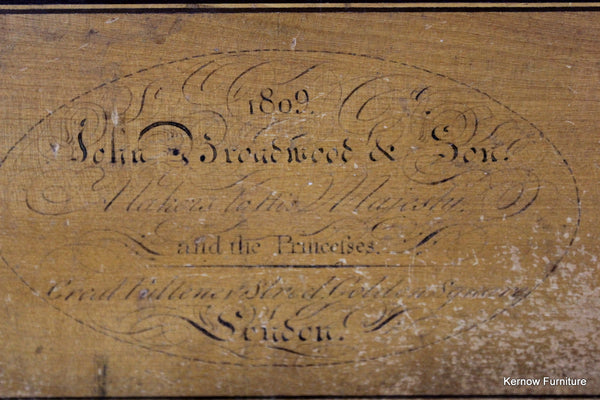 1809.
John Broadwood & Son.
Makers to His Majesty,
and the Princesses.
Great Pulteney Street Golden Square
London.
Kernow Furniture